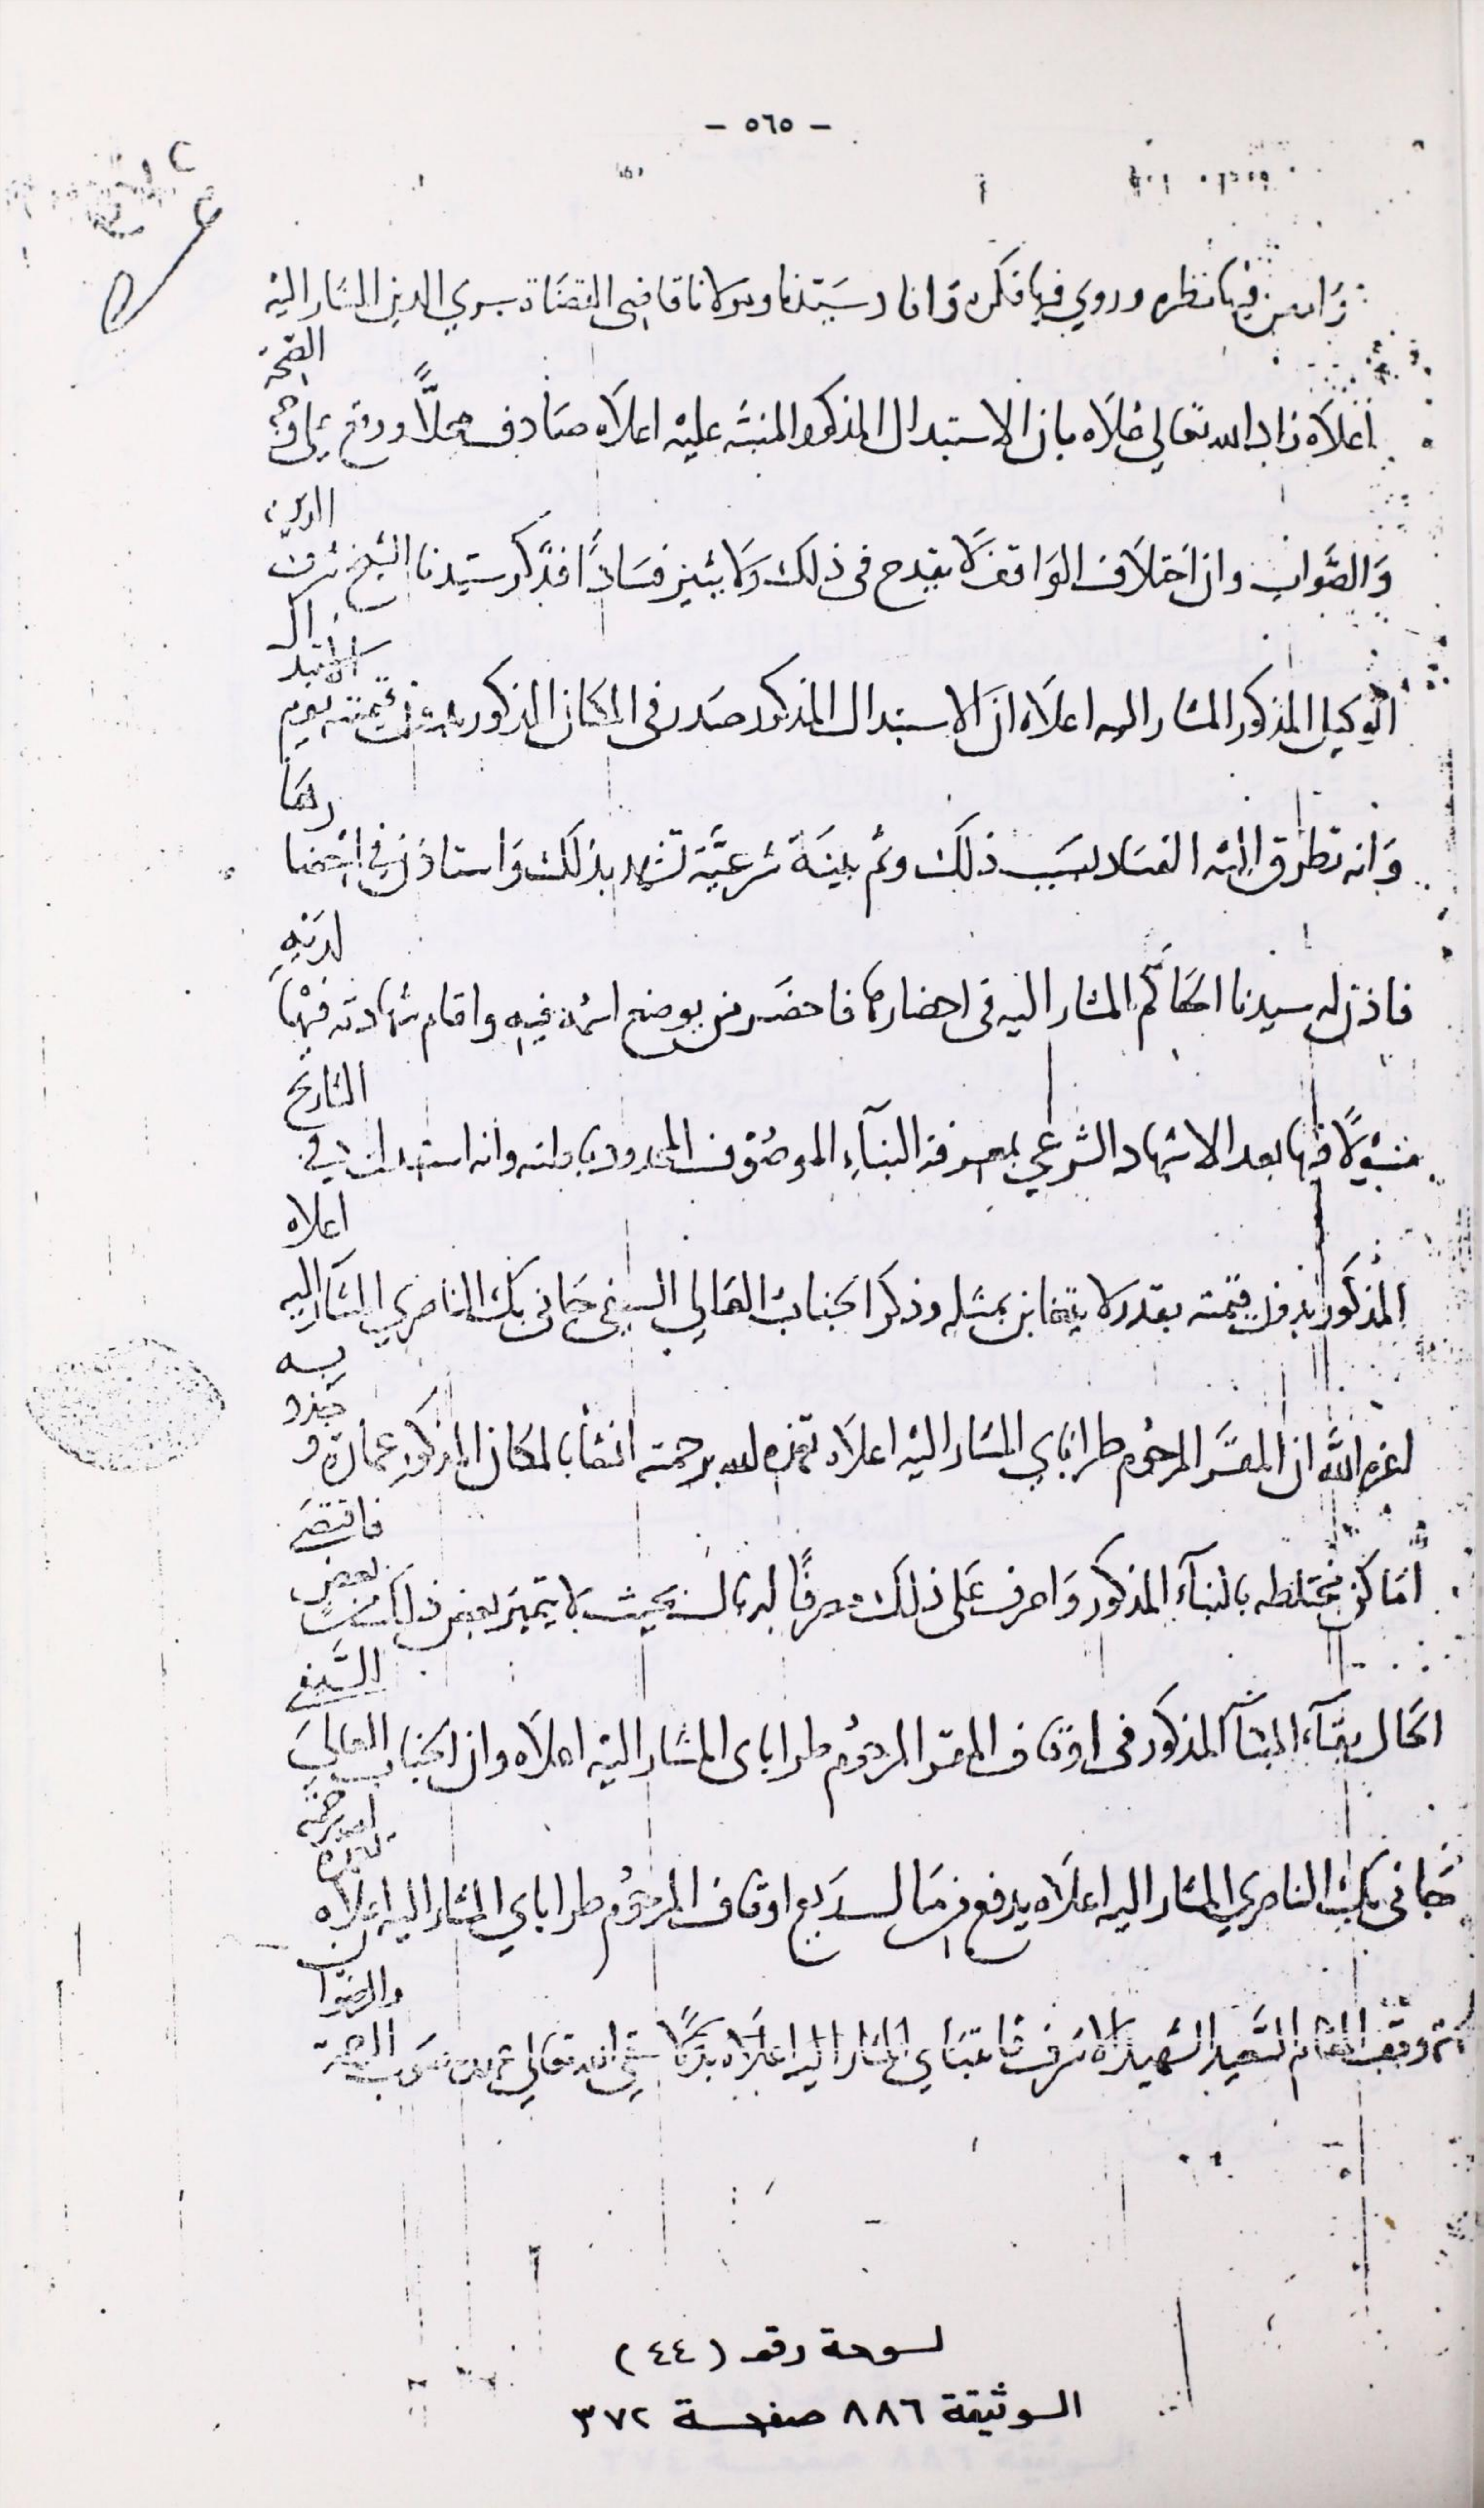 - ٥٦٥ -
وامعن فيها نظره وروي فيها فكره وافاد سيدنا ومولانا قاضي القضاة سري الدين المشار اليه
اعلاه زاد الله تعالى علاه بان الاستبدال المذكور المنبه عليه اعلاه صادف محلا ووقع على وجه الصحة
والصواب وان اختلاف الواقف لا يقدح في ذلك ولا يثير فسادا فذكر سيدنا الشيخ شرف الدين
الوكيل المذكور المشار اليه اعلاه ان الاستبدال المذكور صدر في المكان المذكور بدون قيمته يوم الاستبدال
وانه تطرق اليه الفساد بسبب ذلك وثم بينة شرعية تشهد بذلك واستاذن في احضارها
فاذن له سيدنا الحاكم المشار اليه في احضارها فاحضر من يوضع اسمه فيه واقام شهادته فيها لديه
فيها بعد الاشهاد الشرعي بمعرفة البناء الموصوف المحدود باطنه وانه استبدل في التاريخ
المذكور بدون قيمته بقدر لا يتغابن بمثله وذكر الجناب العالي السيفي جاني بك الناصري المشار اليه اعلاه
اعزه الله ان المقر المرحوم طراباي المشار اليه اعلاه تغمده الله برحمته انشا بالمكان المذكور عمارة وجدد به
اماكن مختلطه بالبناء المذكور واصرف على ذلك مصرفا له مال بحيث لا يتميز بعض ذلك من بعض فاقتضى
الحال بقاء البناء المذكور في اوقاف المقر المرحوم طراباي المشار اليه اعلاه وان الجناب العالي السيفي
جاني بك الناصري المشار اليه اعلاه يدفع من مال ريع اوقاف المرحوم طراباي المشار اليه اعلاه تغمده الله برحمته والرضوان
وقف المقام السعيد الشهيد الاشرف قايتباي المشار اليه اعلاه سقى الله تعالى عهده صوب الرحمة
لوحة رقم (٤٤)
الوثيقة ٨٨٦ صفحة ٣٧٢